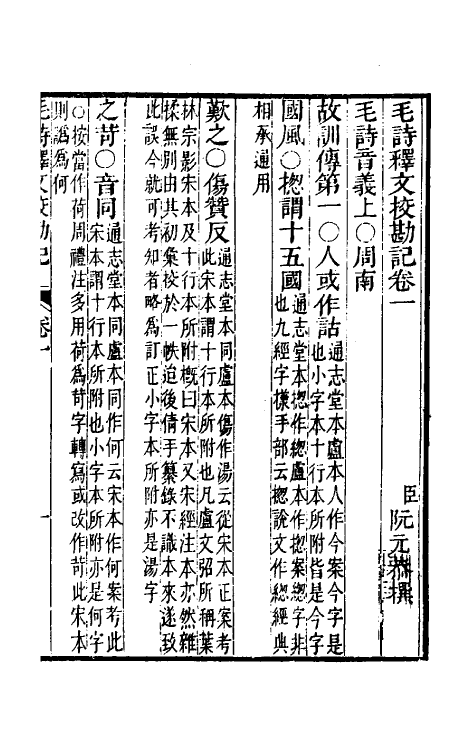 毛詩釋文挍勘記卷一
臣阮元恭撰
毛詩音義上○周南
故訓傳第一○人或作詁通志堂本盧本人作今案今字是也小字本十行本所附皆是今字
國風○揔謂十五國通志堂本揔作總盧本作揔案總字非也九經字㨾手部云揔說文作總經典相承通用
歎之○傷贊反通志堂本同盧本傷作湯云從宋本正案考此宋本謂十行本所附也凡盧文弨所稱葉林宗影宋本及十行本所附槪曰宋本又宋經注本亦然雜揉無別由其初彙挍於一帙迨後倩手纂錄不識本來遂致此誤今就可考知者略爲訂正小字本所附亦是湯字
之苛○音同通志堂本同盧本同作何云宋本作何案考此宋本謂十行本所附也小字本所附亦是何字○按當作荷周禮注多用荷爲苛字轉寫或改作苛此宋本則譌爲何
毛詩釋文挍勘記
卷一
一